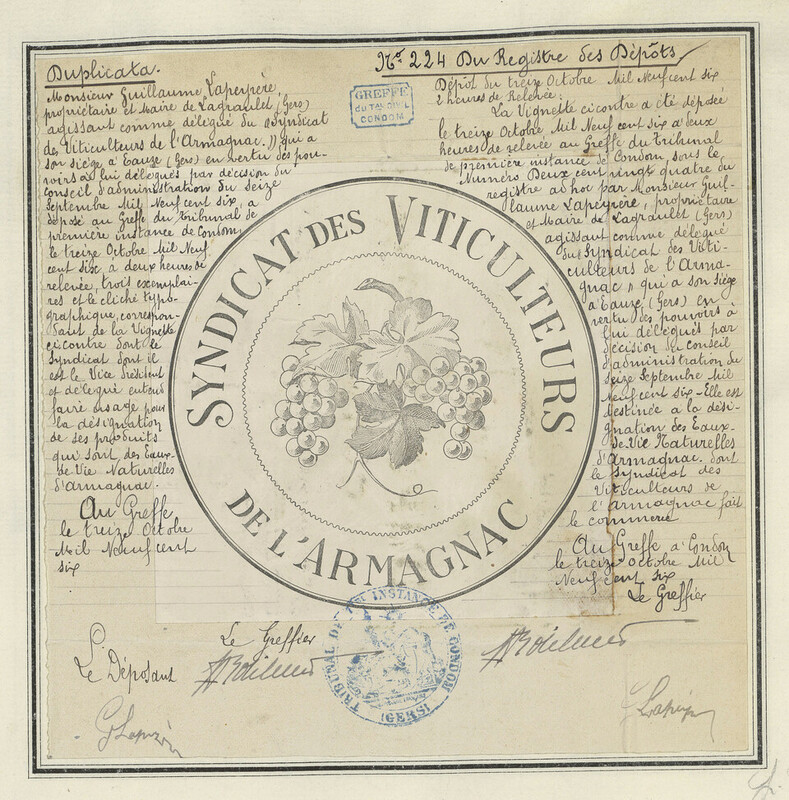 Duplicata.
Monsieur Guillaume Lapeyrère,
propriétaire et Maire de Lagraulet (Gers)
agissant comme délégué du Syndicat
des Viticulteurs de l'Armagnac )) qui a
son siège à Eauze (Gers) en vertu des pou-
voirs à lui délégués par décision du
Conseil d'administration du seize
Septembre Mil Neuf cent six, a
déposé au Greffe du Tribunal de
première instance de Condom
le treize Octobre Mil Neuf
cent six à deux heures de
relevée, trois exemplai-
res et le cliché typo-
graphique, correspon-
dant de la Vignette
ci contre dont le
Syndicat dont il
est le Vice Président
et délégué entend
faire usage pour
la désignation
de ses produits
qui sont des Eaux-
de-Vie Naturelles
d'armagnac.
Au Greffe
le treize Octobre
Mil Neuf cent
six
GREFFE
DU TRI. CIVIL
CONDOM
No. 224 Du Registre des Dépôts
Dépôt du treize Octobre Mil Neuf cent six
2 heures de Relevée:
La Vignette ci contre a été déposée
le treize Octobre Mil Neuf cent six à deux
heures de relevée au Greffe du Tribunal
de première instance de Condom, sous le
Numéro Deux cent vingt quatre du
registre ad hoc par Monsieur Guil-
laume Lapeyrère, propriétaire
et Maire de Lagraulet (Gers)
agissant comme délégué
du Syndicat des Viti-
culteurs de l'Arma-
gnac )) qui a son siège
à Eauze (Gers) en
vertu des pouvoirs à
lui délégués par
décision du Conseil
d'administration du
seize Septembre Mil
Neuf cent six - Elle est
destinée à la dési-
gnation des Eaux-
de-Vie Naturelles
d'Armagnac. dont
le Syndicat des
Viticulteurs de
l'armagnac fait
le commerce
Au Greffe à Condom
le treize Octobre Mil
Neuf cent six
Le Greffier
SYNDICAT DES VITICULTEURS
DE L'ARMAGNAC
Le Déposant
Le Greffier
TRIBUNAL DE 1ère INSTANCE DE CONDOM
(GERS)